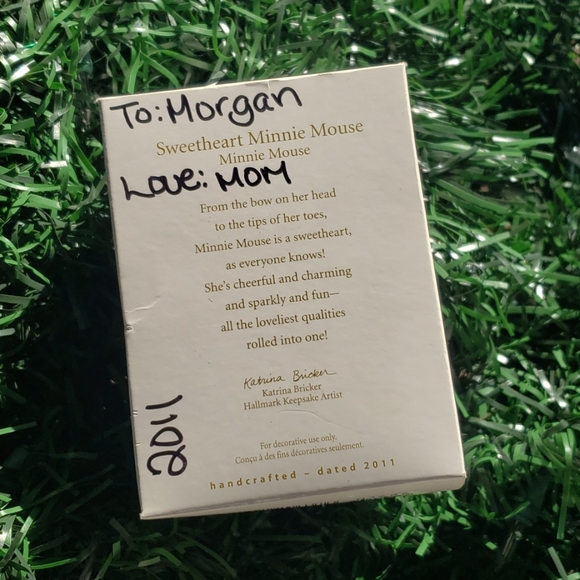 To: Morgan
Sweetheart Minnie Mouse
Minnie Mouse
Love: MOM
From the bow on her head
to the tips of her toes,
Minnie Mouse is a sweetheart,
as everyone knows!
She's cheerful and charming
and sparkly and fun—
all the loveliest qualities
rolled into one!
Katrina Bricker
Katrina Bricker
Hallmark Keepsake Artist
2011
For decorative use only.
Conçu à des fins décoratives seulement.
handcrafted – dated 2011